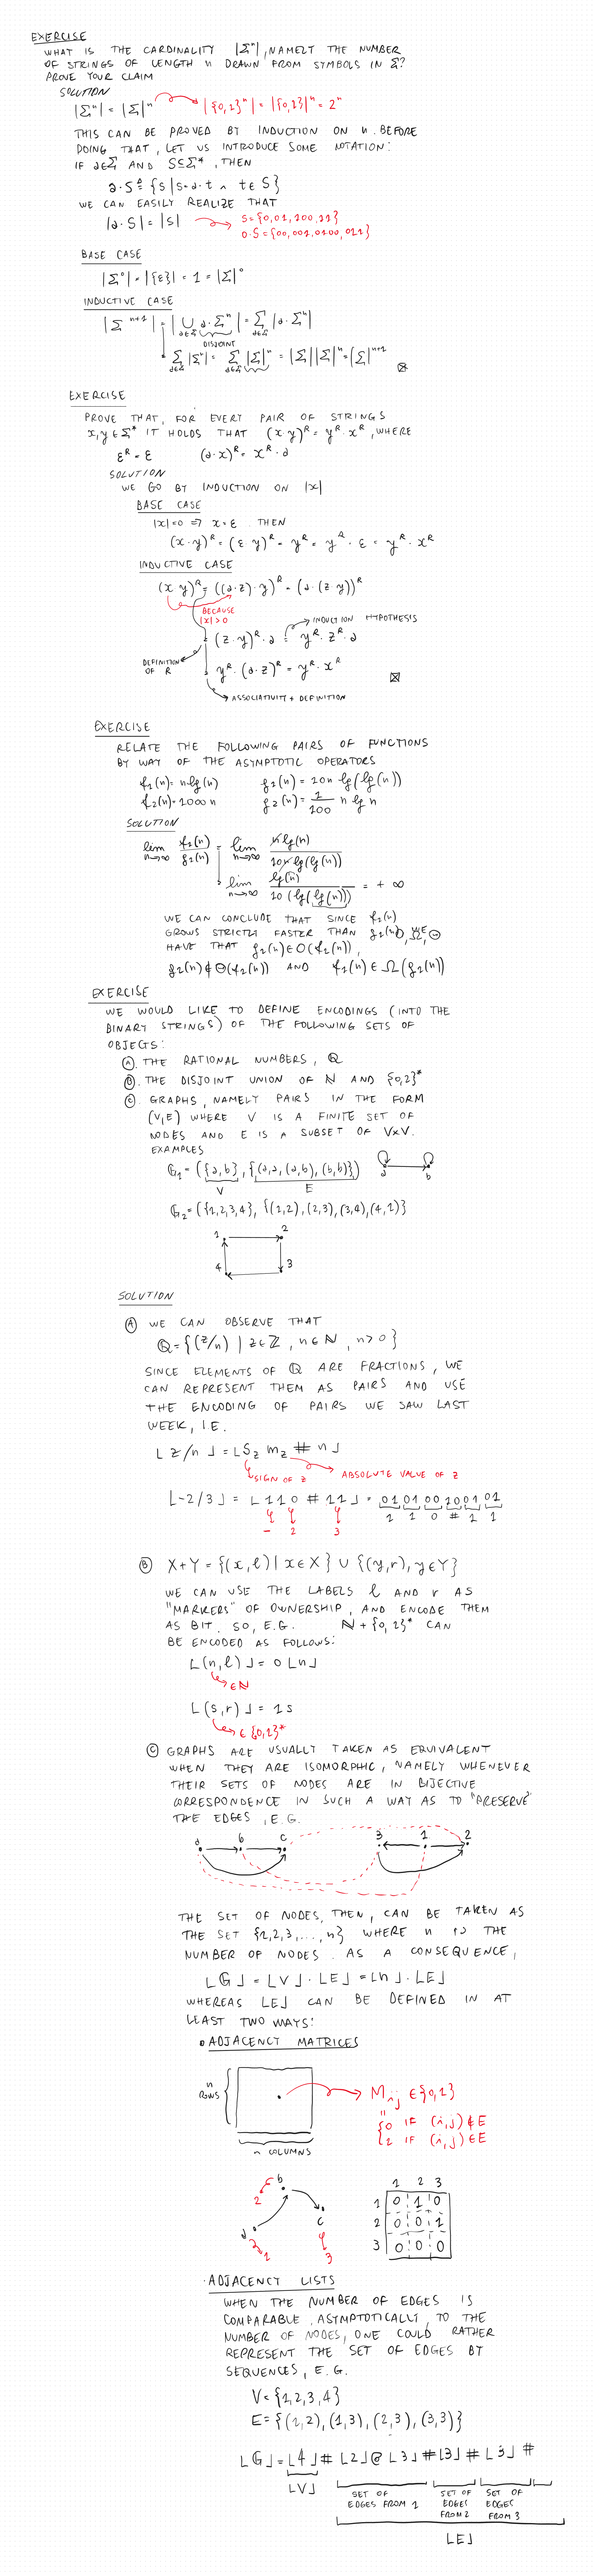 EXERCISE
WHAT IS THE CARDINALITY |Σⁿ|, NAMELY THE NUMBER
OF STRINGS OF LENGTH n DRAWN FROM SYMBOLS IN Σ?
PROVE YOUR CLAIM
SOLUTION
|Σⁿ| = |Σ|ⁿ → |{0,1}ⁿ| = |{0,1}|ⁿ = 2ⁿ
THIS CAN BE PROVED BY INDUCTION ON n. BEFORE
DOING THAT, LET US INTRODUCE SOME NOTATION:
IF a∈Σ AND S⊆Σ*, THEN
a·S ≜ {s | s=a·t ∧ t∈S}
WE CAN EASILY REALIZE THAT
|a·S| = |S| → S={0,01,100,11}
0·S={00,001,0100,011}
BASE CASE
|Σ⁰| = |{ε}| = 1 = |Σ|⁰
INDUCTIVE CASE
|Σⁿ⁺¹| = |⋃a∈Σ a·Σⁿ| = Σa∈Σ |a·Σⁿ|
DISJOINT
= Σa∈Σ |Σⁿ| = Σa∈Σ |Σ|ⁿ = |Σ||Σ|ⁿ = |Σ|ⁿ⁺¹
EXERCISE
PROVE THAT, FOR EVERY PAIR OF STRINGS
x,y∈Σ* IT HOLDS THAT (x·y)ᴿ = yᴿ·xᴿ, WHERE
εᴿ = ε (a·x)ᴿ = xᴿ·a
SOLUTION
WE GO BY INDUCTION ON |x|
BASE CASE
|x|=0 ⇒ x=ε. THEN
(x·y)ᴿ = (ε·y)ᴿ = yᴿ = yᴿ·ε = yᴿ·xᴿ
INDUCTIVE CASE
(x·y)ᴿ = ((a·z)·y)ᴿ = (a·(z·y))ᴿ
BECAUSE
|x|>0
INDUCTION HYPOTHESIS
= (z·y)ᴿ·a = yᴿ·zᴿ·a
DEFINITION
OF R
= yᴿ·(a·z)ᴿ = yᴿ·xᴿ
ASSOCIATIVITY + DEFINITION
EXERCISE
RELATE THE FOLLOWING PAIRS OF FUNCTIONS
BY WAY OF THE ASYMPTOTIC OPERATORS
f₁(n) = n lg(n) g₁(n) = 10n lg(lg(n))
f₂(n) = 1000n g₂(n) = 1/100 n lg n
SOLUTION
lim n→∞ f₁(n)/g₁(n) = lim n→∞ n lg(n)/10n lg(lg(n))
= lim n→∞ lg(n)/10(lg(lg(n))) = +∞
WE CAN CONCLUDE THAT SINCE f₁(n)
GROWS STRICTLY FASTER THAN g₁(n), WE O, Ω, Θ
HAVE THAT g₁(n)∈O(f₁(n)),
g₁(n)∉Θ(f₁(n)) AND f₁(n)∈Ω(g₁(n))
EXERCISE
WE WOULD LIKE TO DEFINE ENCODINGS (INTO THE
BINARY STRINGS) OF THE FOLLOWING SETS OF
OBJECTS:
Ⓐ. THE RATIONAL NUMBERS, ℚ
Ⓑ. THE DISJOINT UNION OF ℕ AND {0,1}*
Ⓒ. GRAPHS, NAMELY PAIRS IN THE FORM
(V,E) WHERE V IS A FINITE SET OF
NODES AND E IS A SUBSET OF V×V.
EXAMPLES
G₁ = ({a,b}, {(a,a),(a,b),(b,b)}) a b
V E
G₂ = ({1,2,3,4}, {(1,2),(2,3),(3,4),(4,1)}
1 2
4 3
SOLUTION
Ⓐ WE CAN OBSERVE THAT
ℚ = {(z/n) | z∈ℤ, n∈ℕ, n>0}
SINCE ELEMENTS OF ℚ ARE FRACTIONS, WE
CAN REPRESENT THEM AS PAIRS AND USE
THE ENCODING OF PAIRS WE SAW LAST
WEEK, I.E.
⌊z/n⌋ = ⌊S_z m_z # n⌋
SIGN OF z ABSOLUTE VALUE OF z
⌊-2/3⌋ = ⌊110#11⌋ = 01 01 00 10 01 01
1 1 0 # 1 1
- 2 3
Ⓑ X+Y = {(x,l) | x∈X} ∪ {(y,r), y∈Y}
WE CAN USE THE LABELS l AND r AS
"MARKERS" OF OWNERSHIP, AND ENCODE THEM
AS BIT. SO, E.G. ℕ+{0,1}* CAN
BE ENCODED AS FOLLOWS:
⌊(n,l)⌋ = 0⌊n⌋
∈ℕ
⌊(s,r)⌋ = 1s
∈{0,1}*
Ⓒ GRAPHS ARE USUALLY TAKEN AS EQUIVALENT
WHEN THEY ARE ISOMORPHIC, NAMELY WHENEVER
THEIR SETS OF NODES ARE IN BIJECTIVE
CORRESPONDENCE IN SUCH A WAY AS TO "PRESERVE"
THE EDGES, E.G.
a b c 3 1 2
THE SET OF NODES, THEN, CAN BE TAKEN AS
THE SET {1,2,3,...,n} WHERE n IS THE
NUMBER OF NODES. AS A CONSEQUENCE,
⌊G⌋ = ⌊V⌋·⌊E⌋ = ⌊n⌋·⌊E⌋
WHEREAS ⌊E⌋ CAN BE DEFINED IN AT
LEAST TWO WAYS:
• ADJACENCY MATRICES
n
ROWS
M_ij ∈{0,1}
=
{0 IF (i,j)∉E
{1 IF (i,j)∈E
n COLUMNS
b
2
c
a
1
3
1 2 3
1 0 1 0
2 0 0 1
3 0 0 0
• ADJACENCY LISTS
WHEN THE NUMBER OF EDGES IS
COMPARABLE, ASYMPTOTICALLY, TO THE
NUMBER OF NODES, ONE COULD RATHER
REPRESENT THE SET OF EDGES BY
SEQUENCES, E.G.
V={1,2,3,4}
E={(1,2),(1,3),(2,3),(3,3)}
⌊G⌋=⌊4⌋#⌊2⌋@⌊3⌋#⌊3⌋#⌊3⌋#
⌊V⌋
SET OF
EDGES FROM 1
SET OF
EDGES
FROM 2
SET OF
EDGES
FROM 3
⌊E⌋